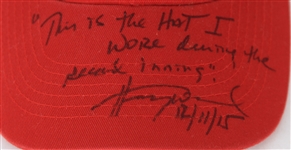 "This is the Hat I
wore during the
second inning".
12/11/15